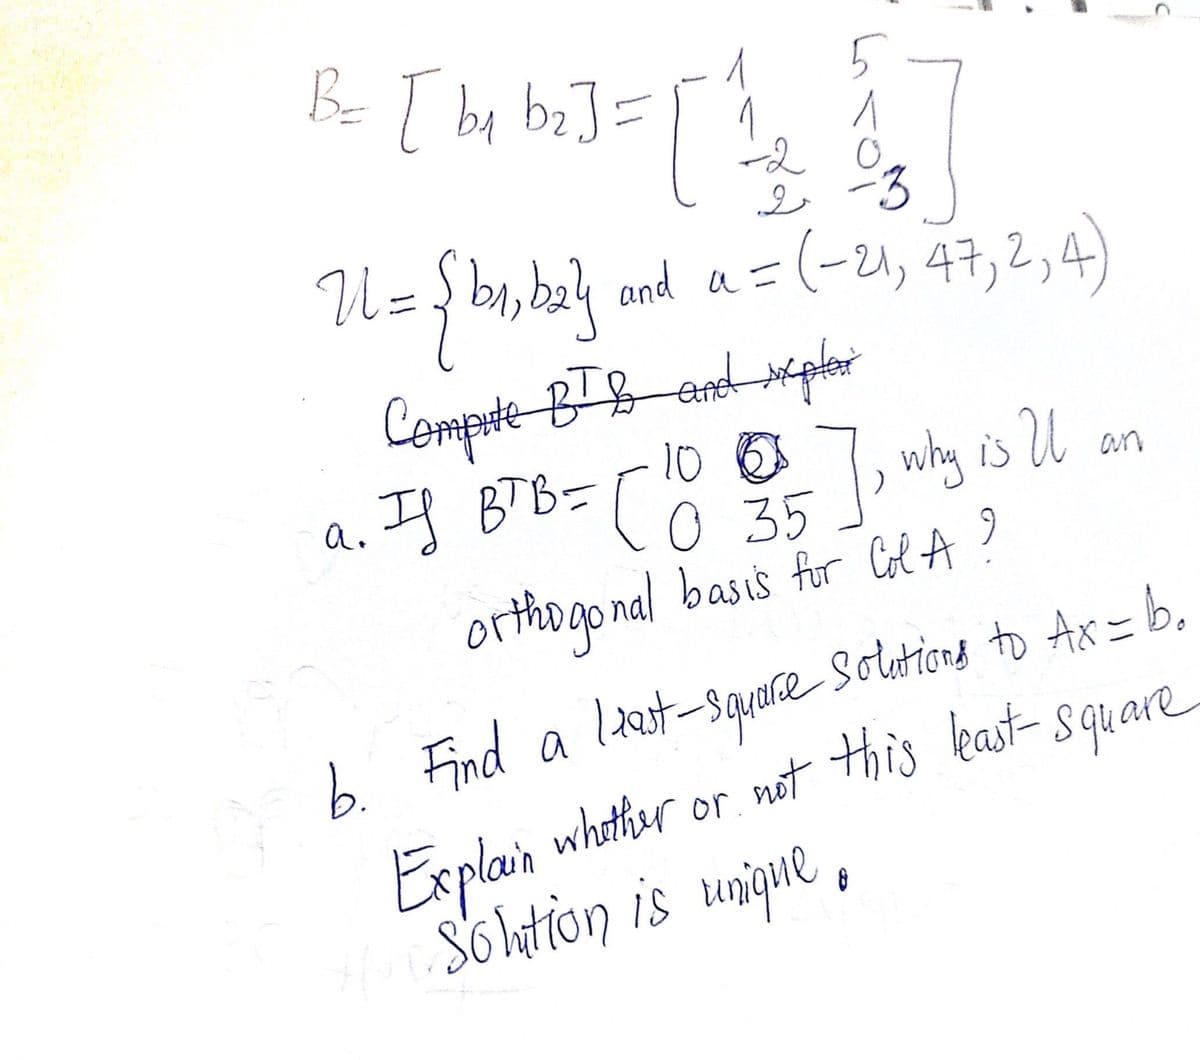 B= [ b1 b2] = [ 1 5
1 1
-2 0
2 -3 ]
U = {b1, b2} and a = (-21, 47, 2, 4)
Compute BTB and explai
a. If BTB = [ 10 0
0 35 ], why is U an
orthogonal basis for Col A ?
b. Find a least-square solutions to Ax = b.
Explain whether or not this least-square
solution is unique.